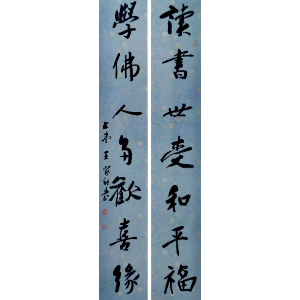 讀書世受和平福
學佛人多歡喜緣
王家新書